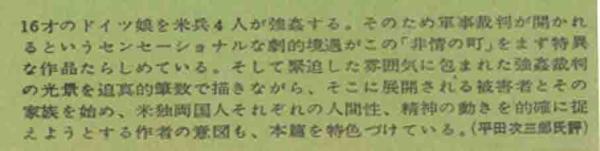 16才のドイツ娘を米兵4人が強姦する。そのため軍事裁判が開かれ
るというセンセーショナルな劇的境遇がこの「非情の町」をまず特異
な作品たらしめている。そして緊迫した雰囲気に包まれた強姦裁判
の光景を迫真的筆数で描きながら、そこに展開される被害者とその
家族を始め、米独両国人それぞれの人間性、精神の動きを的確に捉
えようとする作者の意図も、本篇を特色づけている。(平田次三郎氏評)